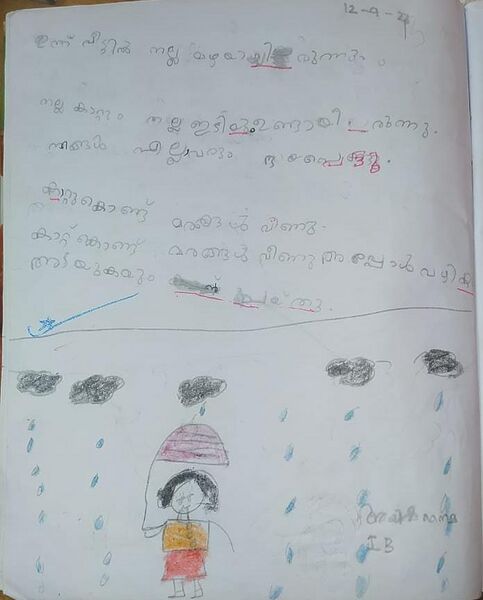 12-9-24
ഇന്ന് വീട്ടിൽ നല്ല മഴയായിരുന്നു.
നല്ല കാറ്റും നല്ല ഇടിയുംഉണ്ടായിരുന്നു.
ഞങ്ങൾ എല്ലാവരും ഭയപ്പെട്ടു.
കാറ്റുകൊണ്ട് മരങ്ങൾ വീണു.
കാറ്റ് കൊണ്ട് മരങ്ങൾ വീണു അപ്പോൾ വഴി
അടയുകയും ചെയ്തു.
I B